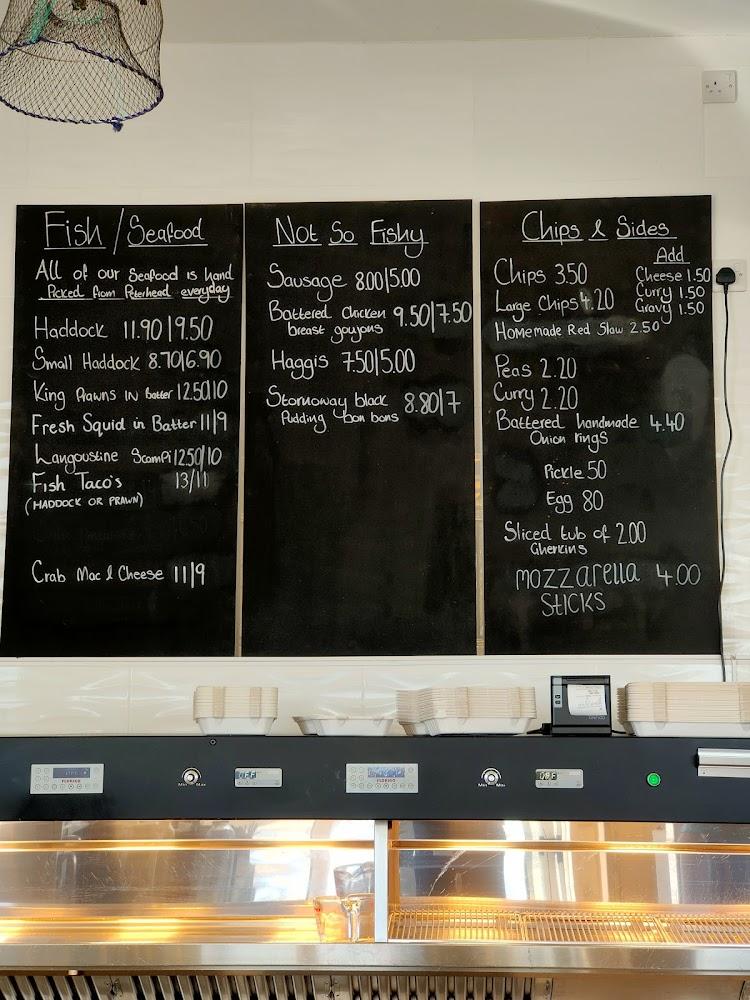 Fish/Seafood
All of our Seafood is hand
Picked from Peterhead everyday
Haddock 11.90|9.50
Small Haddock 8.70|6.90
King Prawns in batter 12.50|10
Fresh Squid in Batter 11|9
Langoustine Scampi 12.50/10
Fish Taco's 13/11
(HADDOCK OR PRAWN)
Crab Mac & Cheese 11|9
Not So Fishy
Sausage 8.00|5.00
Battered Chicken 9.50|7.50
breast goujons
Haggis 7.50|5.00
Stornoway black 8.80|7
Pudding bon bons
Chips & Sides
Add
Cheese 1.50
Curry 1.50
Gravy 1.50
Chips 3.50
Large Chips 4.20
Homemade Red Slaw 2.50
Peas 2.20
Curry 2.20
Battered handmade 4.40
Onion rings
Pickle 50
Egg 80
Sliced tub of 2.00
Gherkins
Mozzarella 4.00
Sticks
OFF
OFF